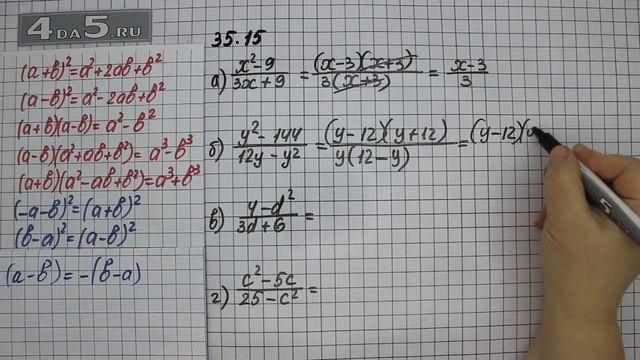 4DA5.RU
(a+b)²=a²+2ab+b²
(a-b)²=a²-2ab+b²
(a+b)(a-b)=a²-b²
(a-b)(a²+ab+b²)=a³-b³
(a+b)(a²-ab+b²)=a³+b³
(-a-b)²=(a+b)²
(b-a)²=(a-b)²
(a-b)=-(b-a)
35.15
а) (x²-9)/(3x+9) = ((x-3)(x+3))/(3(x+3)) = (x-3)/3
б) (y²-144)/(12y-y²) = ((y-12)(y+12))/(y(12-y)) = (y-12)(
в) (4-d²)/(3d+6) =
г) (c²-5c)/(25-c²) =
5